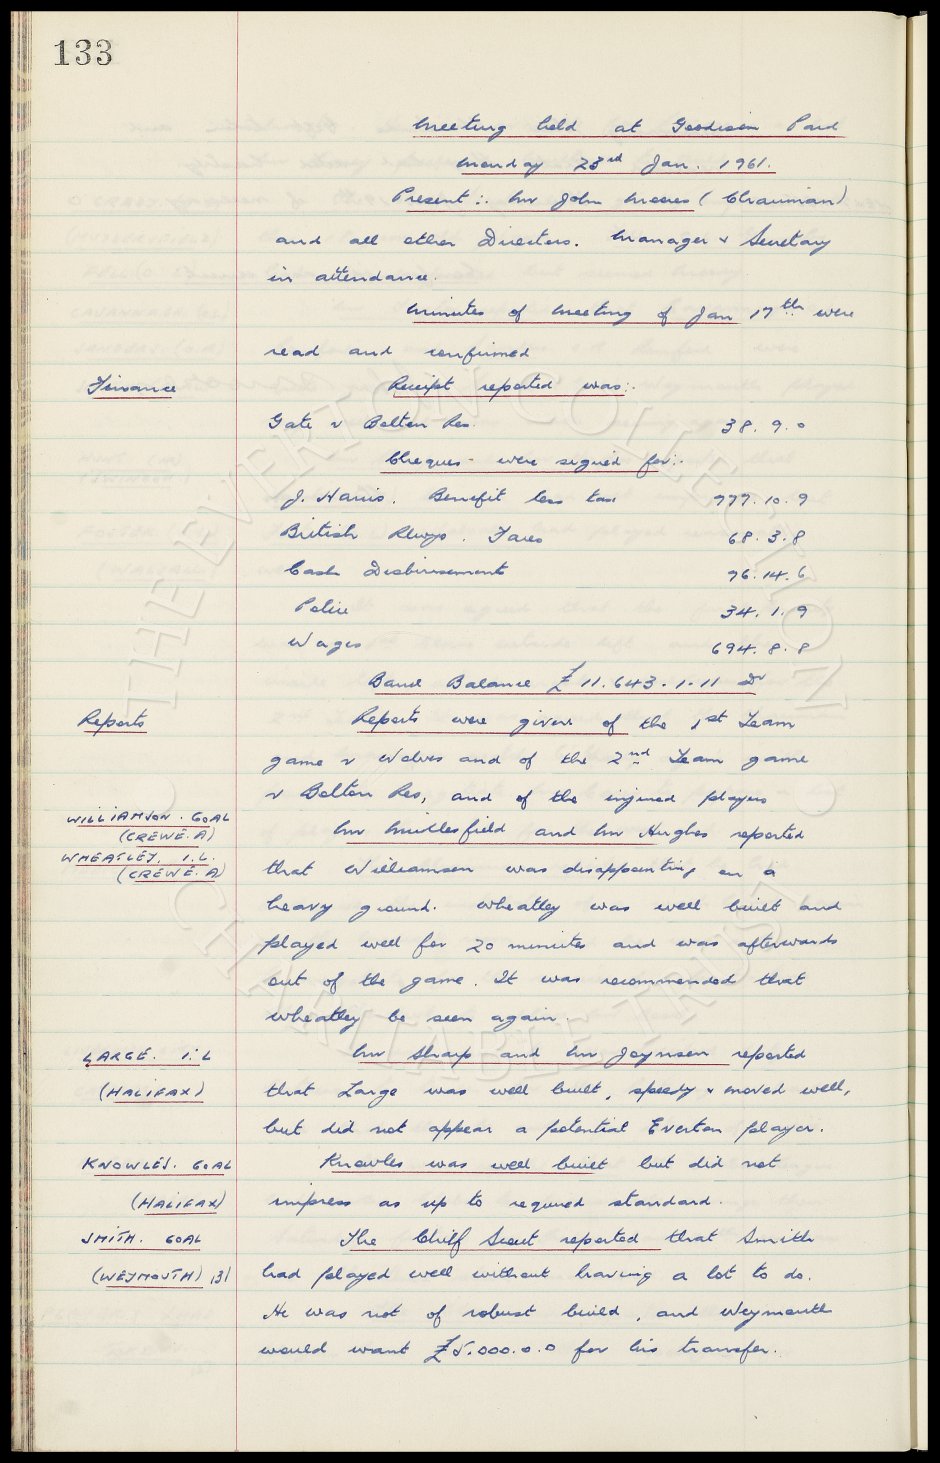 133
Meeting held at Goodison Park
Monday 23rd Jan. 1961.
Present:. Mr John Moores (Chairman)
and all other Directors. Manager & Secretary
in attendance.
Minutes of Meeting of Jan 17th were
read and confirmed
Finance
Receipt reported was:.
Gate v Bolton Res. 38. 9. 0
Cheques were signed for:.
J. Harris. Benefit less tax 777. 10. 9
British Rlwys. Fares 68. 3. 8
Cash Disbursements 76. 14. 6
Police 34. 1. 9
Wages 694. 8. 8
Bank Balance £11.643. 1. 11 Dr
Reports
Reports were given of the 1st Team
game v Wolves and of the 2nd Team game
v Bolton Res, and of the injured players
WILLIAMSON. GOAL
(CREWE. A)
WHEATLEY. I.L.
(CREWE. A)
Mr Micklesfield and Mr Hughes reported
that Williamson was disappointing on a
heavy ground. Wheatley was well built and
played well for 20 minutes and was afterwards
out of the game. It was recommended that
Wheatley be seen again.
LARGE. I.L
(HALIFAX)
Mr Sharp and Mr Joynson reported
that Large was well built, speedy & moved well,
but did not appear a potential Everton player.
KNOWLES. GOAL
(HALIFAX)
Knowles was well built but did not
impress as up to required standard.
SMITH. GOAL
(WEYMOUTH) 131
The Chief Scout reported that Smith
had played well without having a lot to do.
He was not of robust build, and Weymouth
would want £5.000.0.0 for his transfer.
THE EVERTON COLLECTION
CHARITABLE TRUST